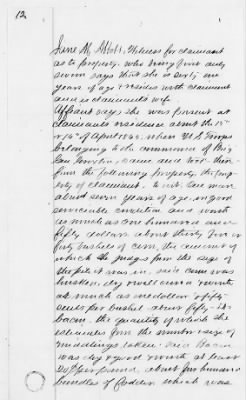 12
Jane M. Witness for claimant
as to property, who being first duly
sworn says that she is sixty one
years of age & resides with claimant
and is claimants wife
Affiant says she was present at
claimants residence about the
of April 1865, when U.S. Troops
belonging to the command of Brig
Gen came and took there
from the following property, the prop-
erty of claimant, to wit: One mare
about seven years of age, in good
serviceable condition and worth
as much as one hundred and
fifty dollars about thirty five or
forty bushels of corn, the amount of
which she judges from the size of
the pile it was in, said corn was
husked, dry & well cured & worth
as much as one dollar & fifty
cents per bushel about fifty lbs
bacon, the quantity of which she
estimates from the number & size of
middlings taken. Said Bacon
was dry & good & worth at least
per pound about four hundred
bundles of fodder which was